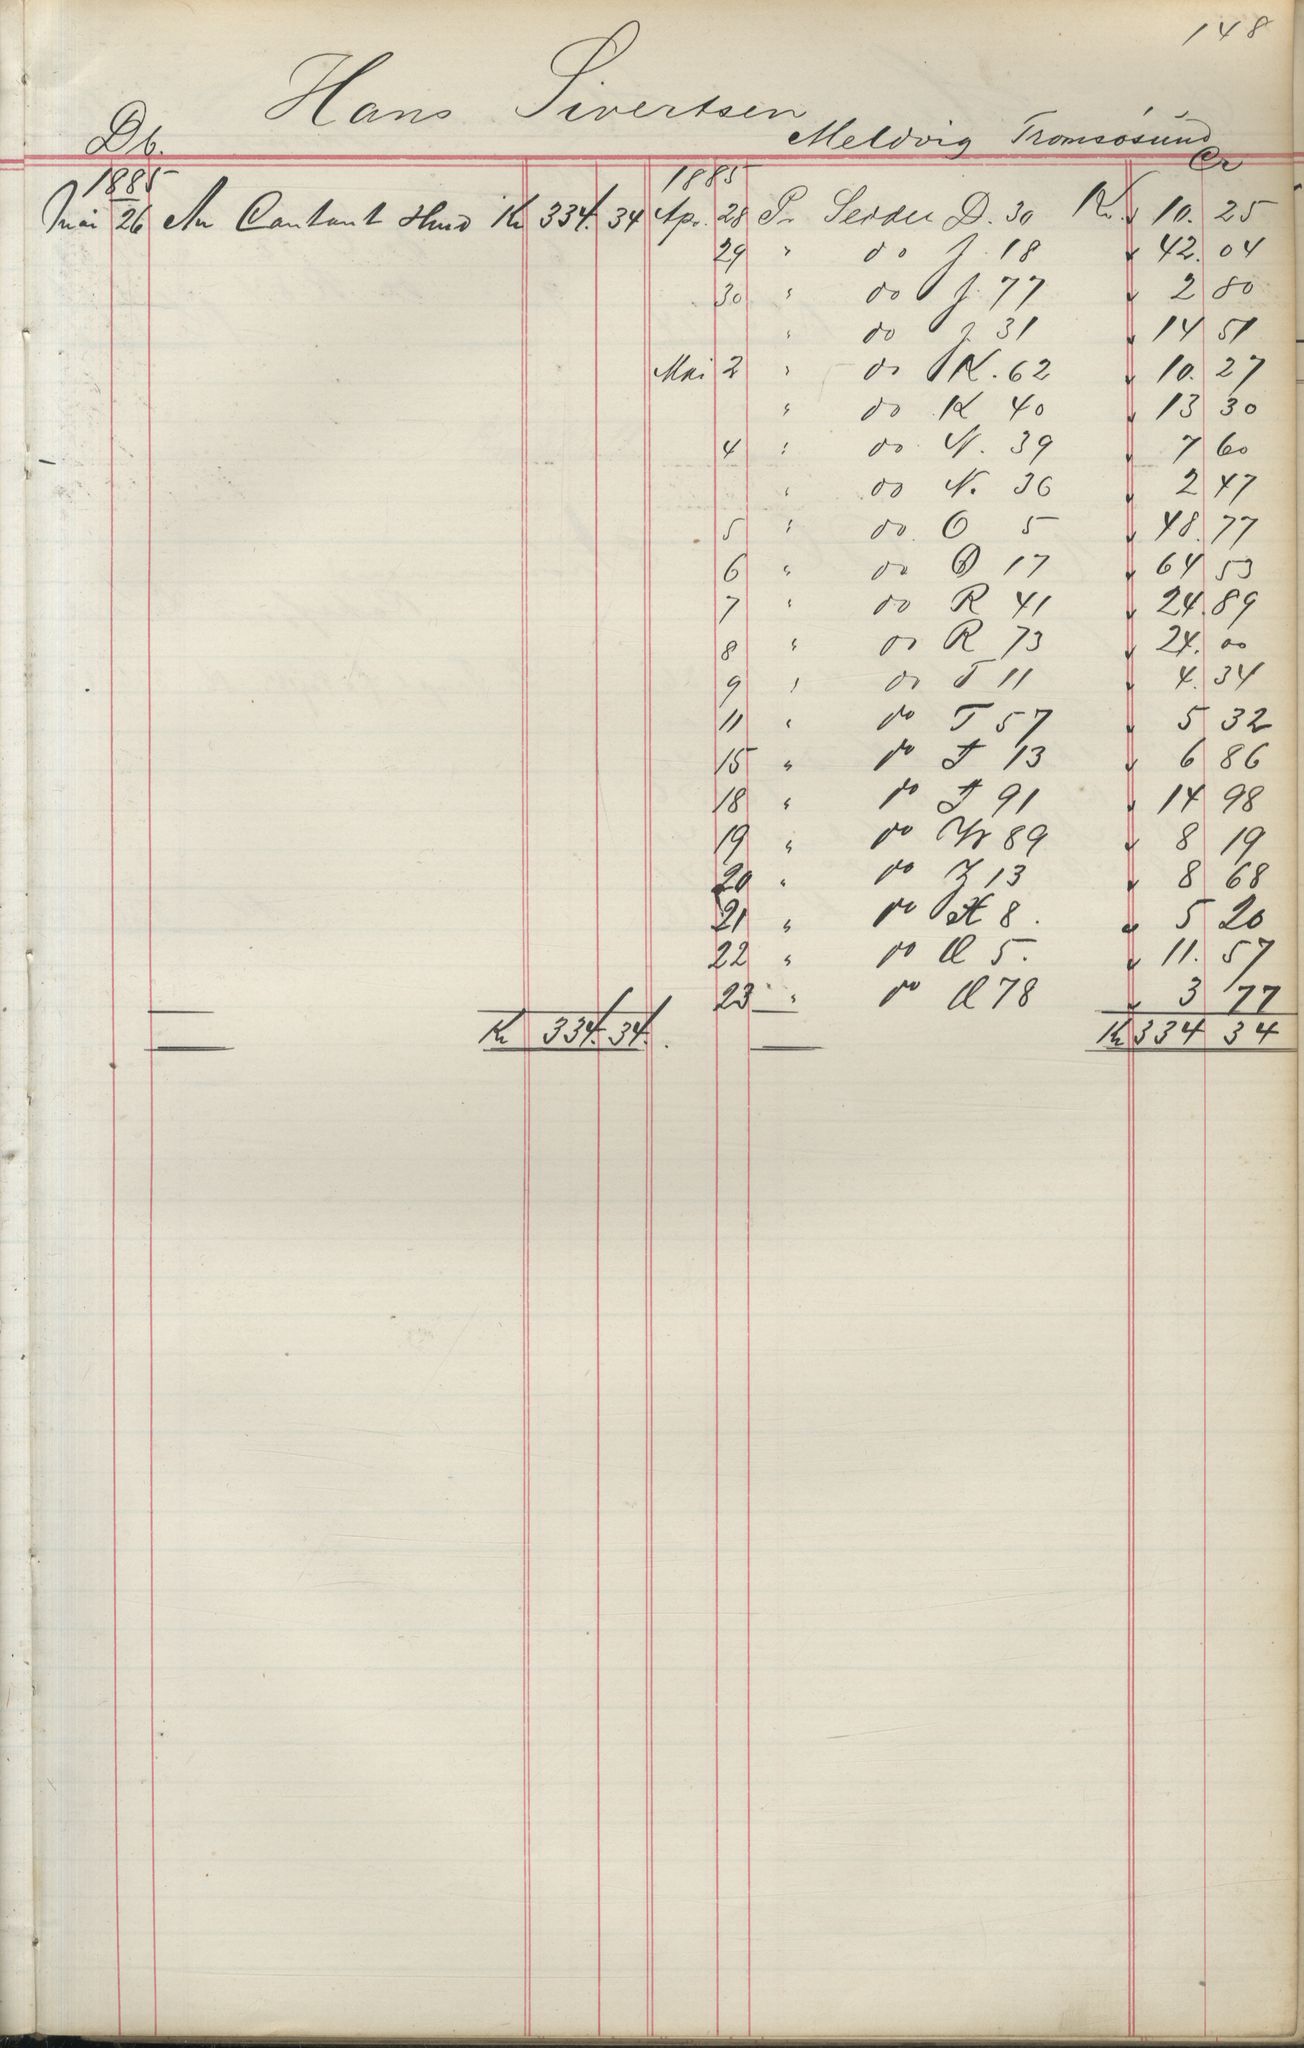 148
Hans Sivertsen
Meldvig Tromsøsund
Db. Cr
1885 1885
Mai 26 An Contant Hmd Kr 334. 34 Ap. 28 Pr Seddel D. 30 Kr. 10. 25
29 " do J. 18 " 42. 04
30 " do J. 77 " 2 80
" do J. 31 " 14 51
Mai 2 " do K. 62 " 10. 27
" do K 40 " 13 30
4 " do N. 39 " 7 60
" do N. 36 " 2 47
5 " do O 5 " 48. 77
6 " do 17 " 64 53
7 " do R 41 " 24. 89
8 " do R 73 " 24. 00
9 " do T 11 " 4. 34
11 " do T 57 " 5 32
15 " do 13 " 6 86
18 " do 91 " 14 98
19 " do 89 " 8 19
20 " do Z 13 " 8 68
21 " do Æ 8. " 5 20
22 " do 5. " 11. 57
23 " do 78 " 3 77
Kr 334. 34. Kr 334 34